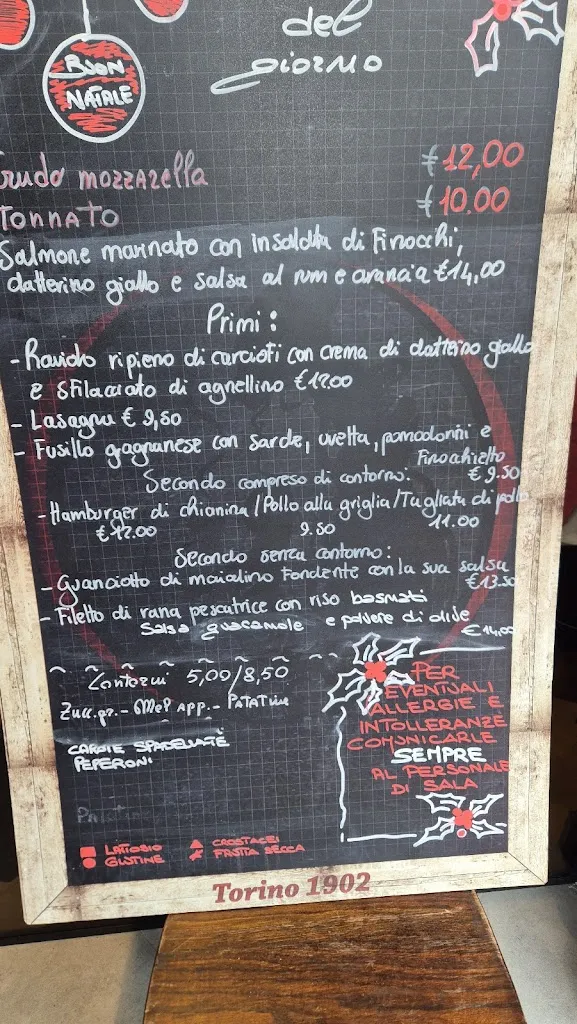 del
giorno
BUON
NATALE
crudo mozzarella €12,00
TONNATO €10.00
Salmone marinato con insalata di Finocchi,
datterino giallo e salsa al rum e arancia €14,00
Primi:
- Raviolo ripieno di carciofi con crema di datterino giallo
e sfilacciato di agnellino €12.00
- Lasagna € 9,50
- Fusillo gragnanese con sarde, uvetta, pomodorini e
Finocchietto
€ 9.50
Secondo compreso di contorno:
- Hamburger di chianina / Pollo alla griglia / Tagliata di pollo
€12.00 9.50 11.00
Secondo senza contorno:
- Guanciotto di maialino Fondente con la sua salsa
€13.50
- Filetto di rana pescatrice con riso basmati
salsa guacamole e polvere di olive
€14,00
Contorni 5,00/8,50
Zucc.gr. - App. - Patatine
CAROTE SPADELLATE
PEPERONI
PER
EVENTUALI
ALLERGIE E
INTOLLERANZE
COMUNICARLE
SEMPRE
AL PERSONALE
DI SALA
LATTOSIO
GLUTINE
CROSTACEI
FRUTTA SECCA
Torino 1902